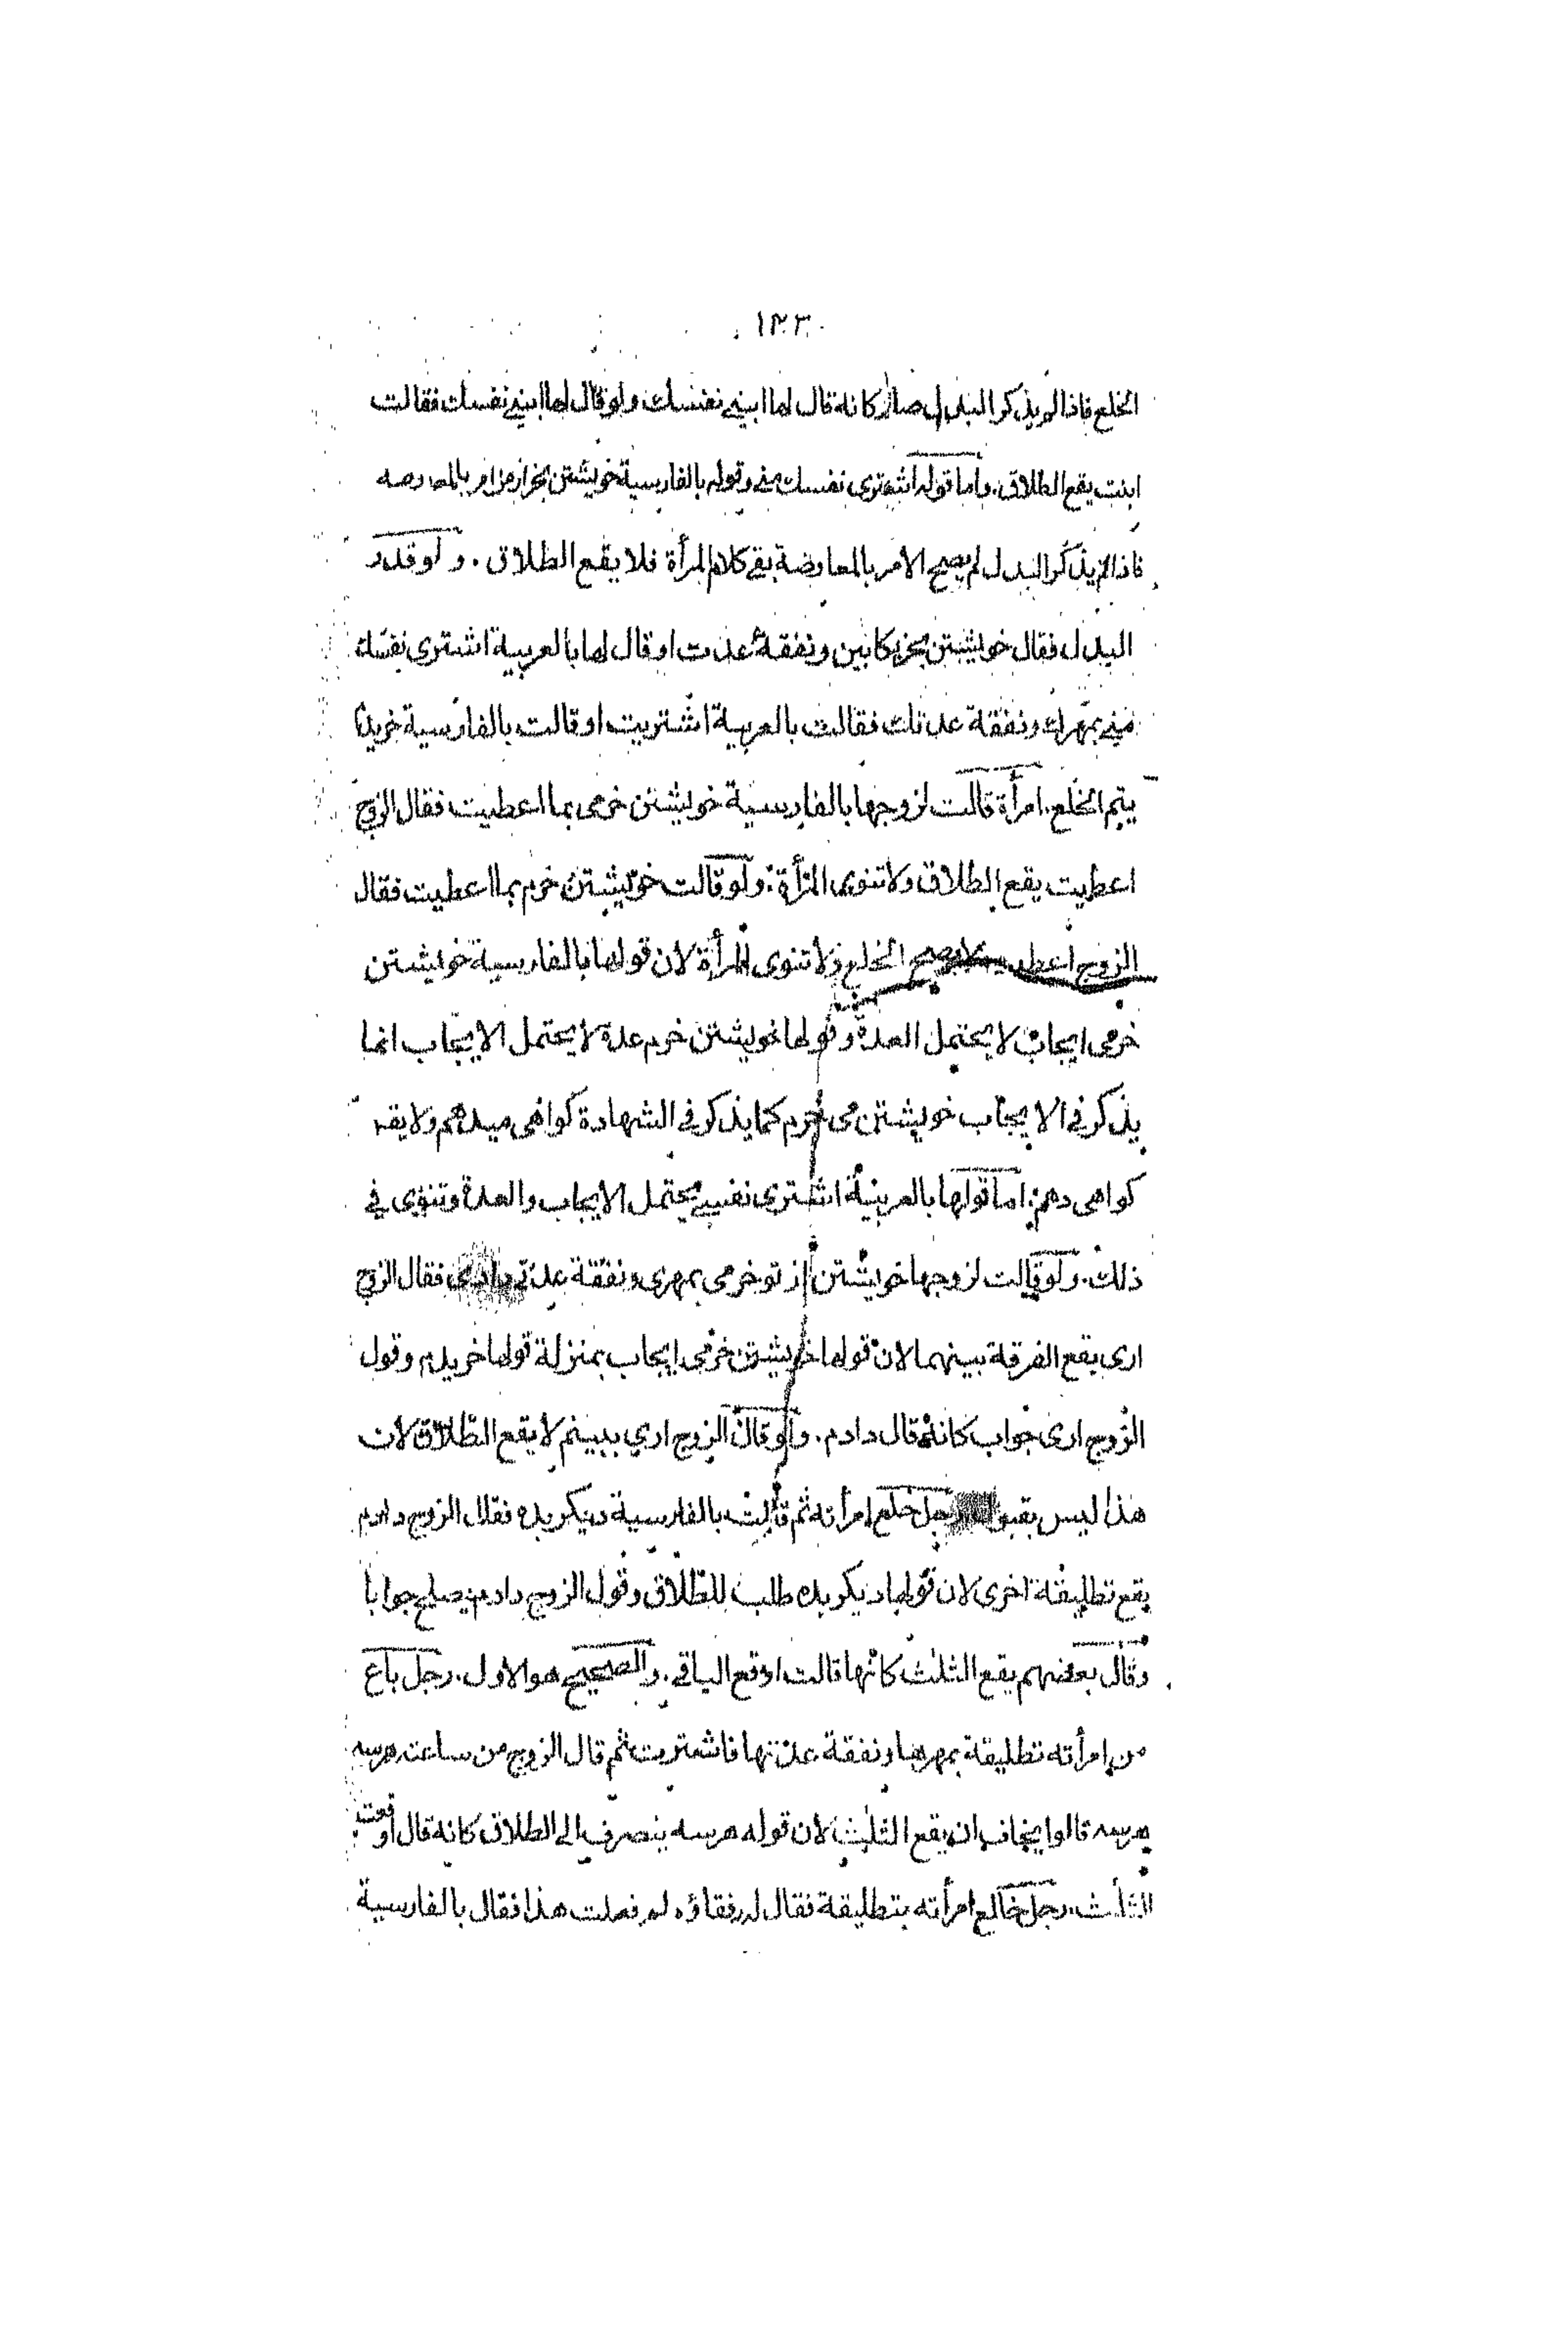 ١٢٣
الخلع فاذا لم يذكر البدل صار كانه قال لها ابيني نفسك ولو قال لها ابيني نفسك فقالت
ابنت يقع الطلاق. واما قوله اشتري نفسك مني وقوله بالفارسية خويشتن بخر از من امر بالمعاوضه
فاذا لم يذكر البدل لم يصح الامر بالمعاوضة بقي كلام المرأة فلا يقع الطلاق. ولو قدر
البدل فقال خويشتن بخر بكابين ونفقهٔ عدت او قال لها بالعربية اشتري نفسك
مني بمهرك ونفقة عدتك فقالت بالعربية اشتريت او قالت بالفارسية خريدم
يتم الخلع. امرأة قالت لزوجها بالفارسية خويشتن خرمى بما اعطيت فقال الزوج
اعطيت يقع الطلاق ولا تنوى المرأة. ولو قالت خويشتن خرم بما اعطيت فقال
الزوج اعطيت لا يصح الخلع ولا تنوى المرأة لان قولها بالفارسية خويشتن
خرمى ايجاب لا يحتمل العدة وقولها خويشتن خرم عدة لا يحتمل الايجاب انما
يذكر في الايجاب خويشتن مى خرم كما يذكر في الشهادة كواهى ميدهم ولا يقه
كواهى دهم. اما قولها بالعربية اشترى نفسي يحتمل الايجاب والعدة وتنوى في
ذلك. ولو قالت لزوجها خويشتن از تو خرمى بمهرى ونفقة عدتى دادى فقال الزوج
ارى يقع الفرقة بينهما لان قولها خويشتن خرمى ايجاب بمنزلة قولها خريدم وقول
الزوج ارى جواب كانه قال دادم. ولو قال الزوج ارى ببينم لا يقع الطلاق لان
هذا ليس بقبول رجل خلع امرأته ثم قالت بالفارسية ديكر بده فقال الزوج دادم
يقع تطليقة اخرى لان قولها ديكر بده طلب للطلاق وقول الزوج دادم يصلح جوابا
وقال بعضهم يقع الثلث كانها قالت اوقع الباقي. والصحيح هو الاول. رجل باع
من امرأته تطليقة بمهرها ونفقة عدتها فاشترت ثم قال الزوج من ساعته هرسه
هرسه قالوا يخاف ان يقع الثلث لان قوله هرسه ينصرف الى الطلاق كانه قال اوقعت
الثلث. رجل خالع امرأته بتطليقة فقال له رفقاؤه لم فعلت هذا فقال بالفارسية